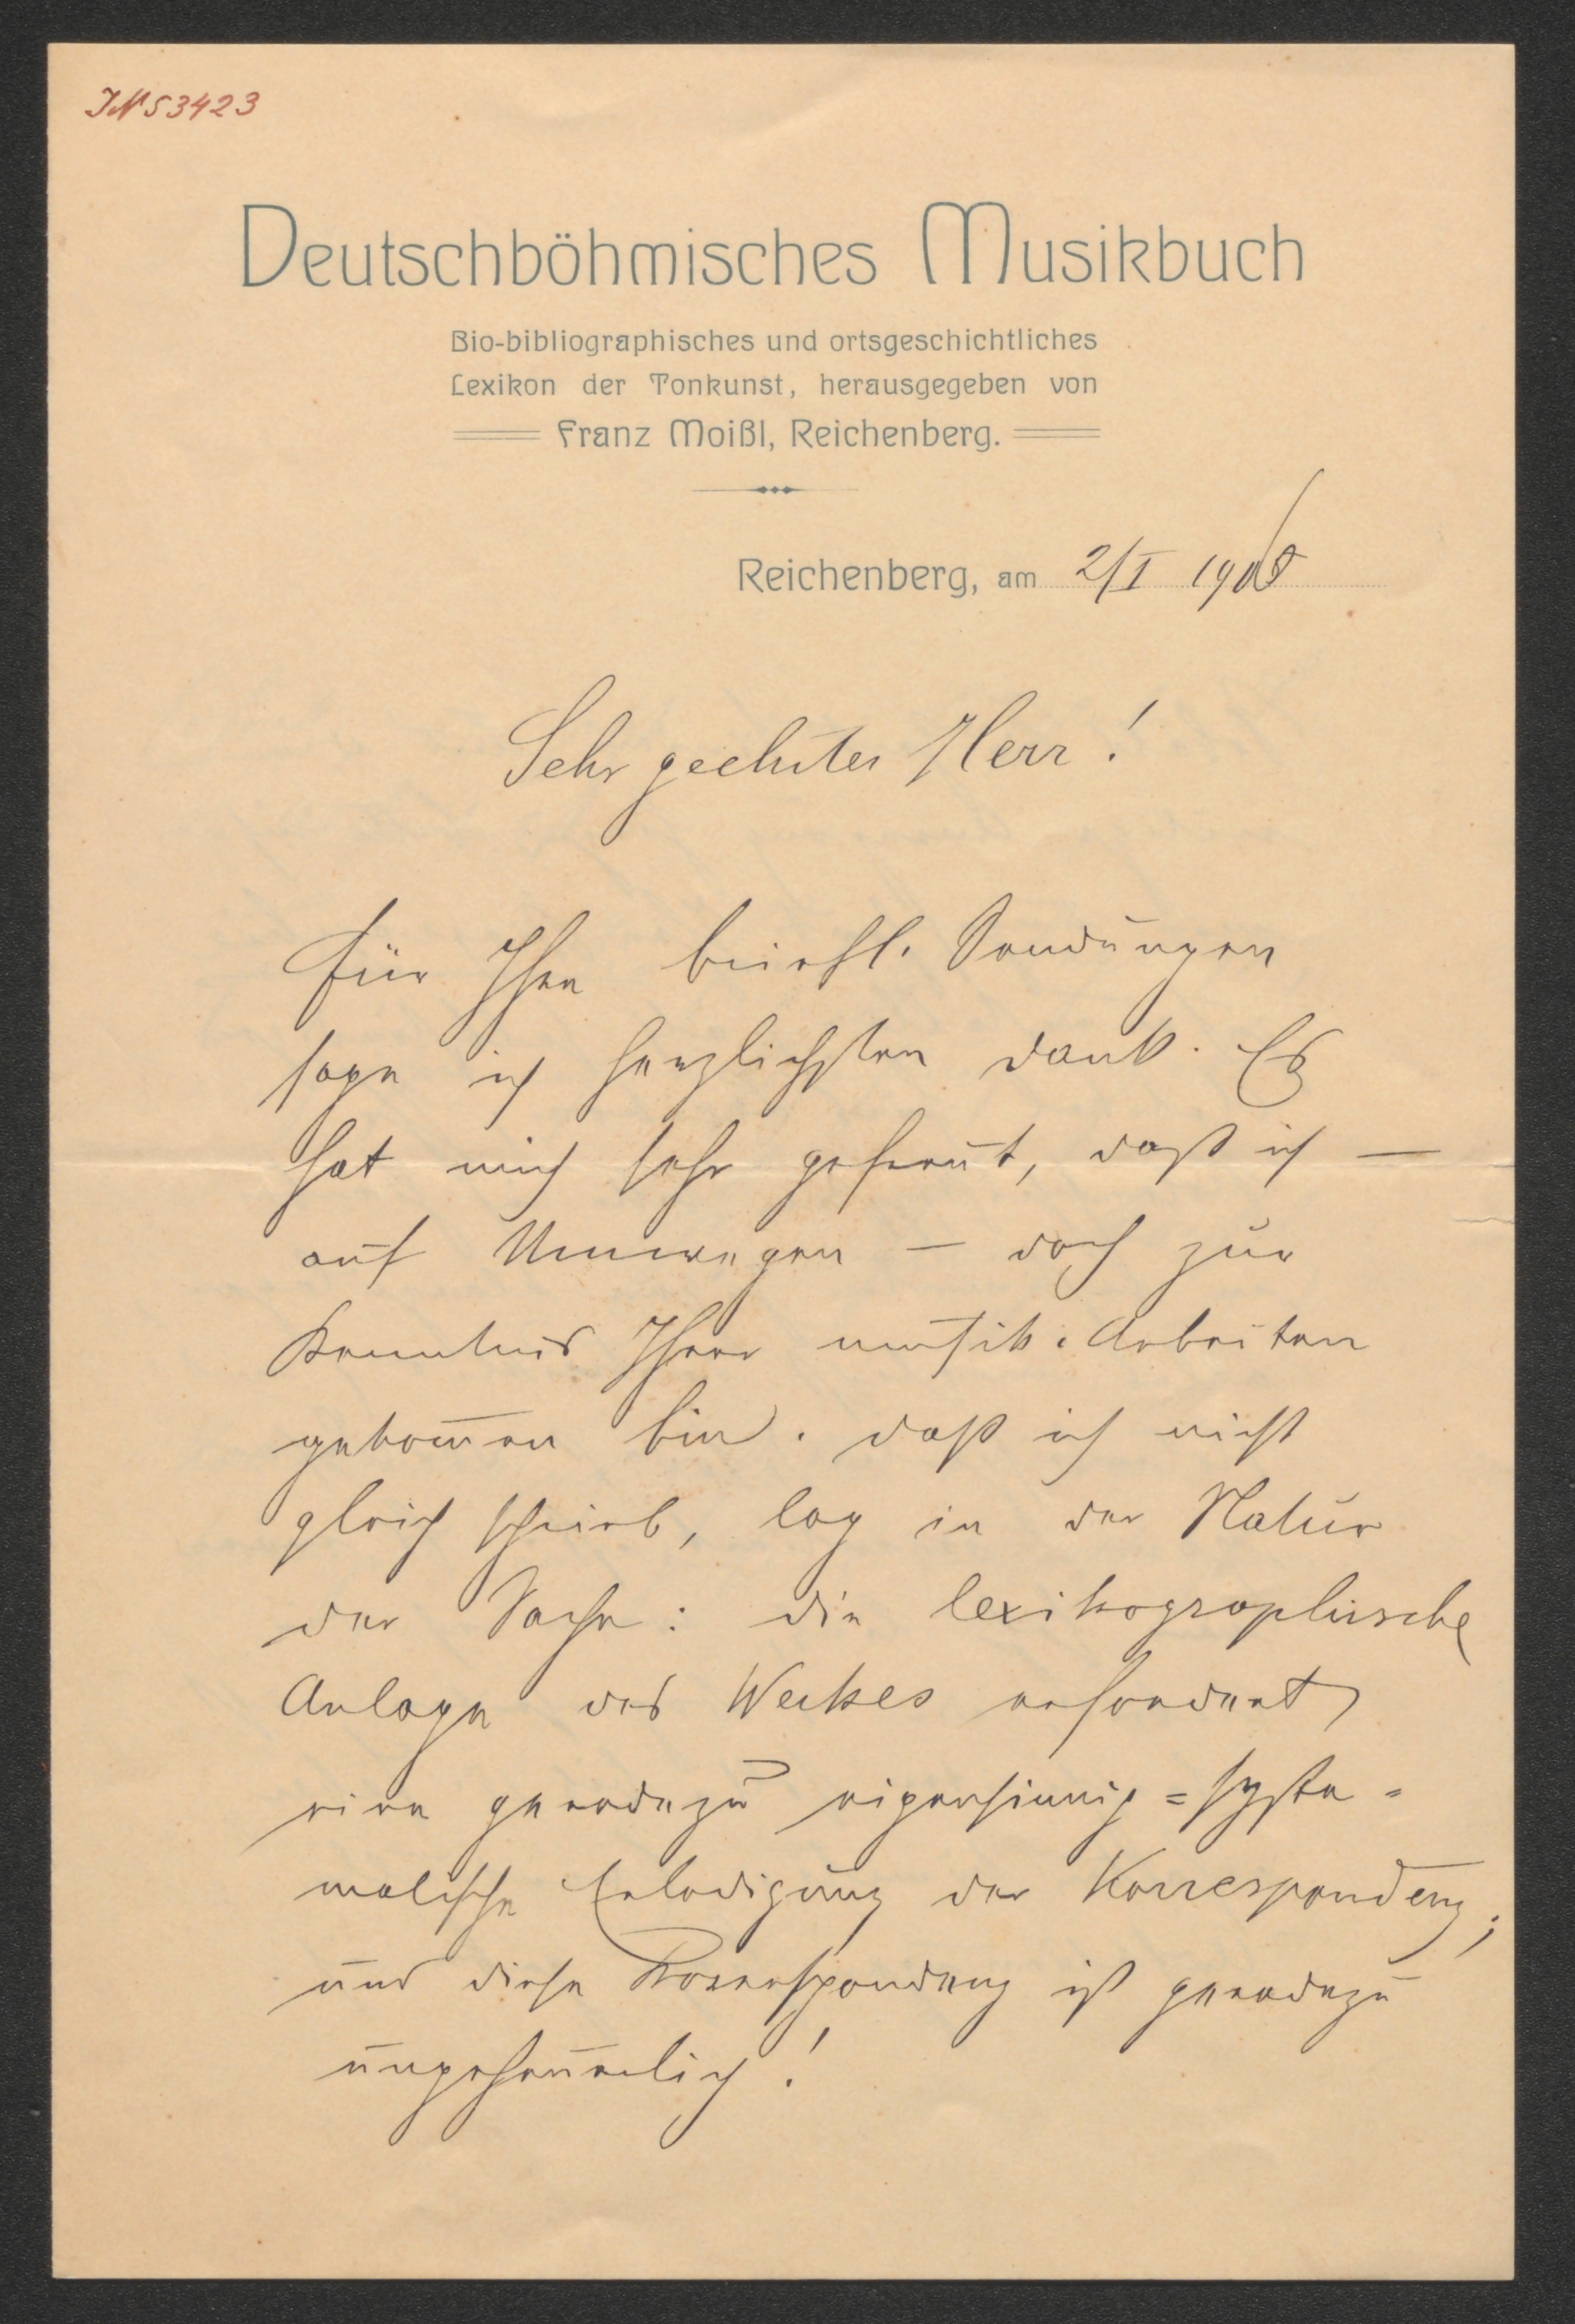 JN 53423
Deutschböhmisches Musikbuch
Bio-bibliographisches und ortsgeschichtliches
Lexikon der Tonkunst, herausgegeben von
Franz Moißl, Reichenberg.
Reichenberg, am 2/I 1908
Sehr geehrter Herr!
für Ihre briefl. Sendungen
sage ich herzlichsten Dank. Es
hat mich sehr gefreut, daß ich —
auf Umwegen — doch zur
Kenntnis Ihrer musik. Arbeiten
gekom̄en bin. Daß ich nicht
gleich schrieb, lag in der Natur
der Sache: die lexikographische
Anlage des Werkes erfordert
eine geradezu eigensinnig=syste=
matische Erledigung der Korrespondenz;
und diese Korrespondenz ist geradezu
ungeheuerlich!